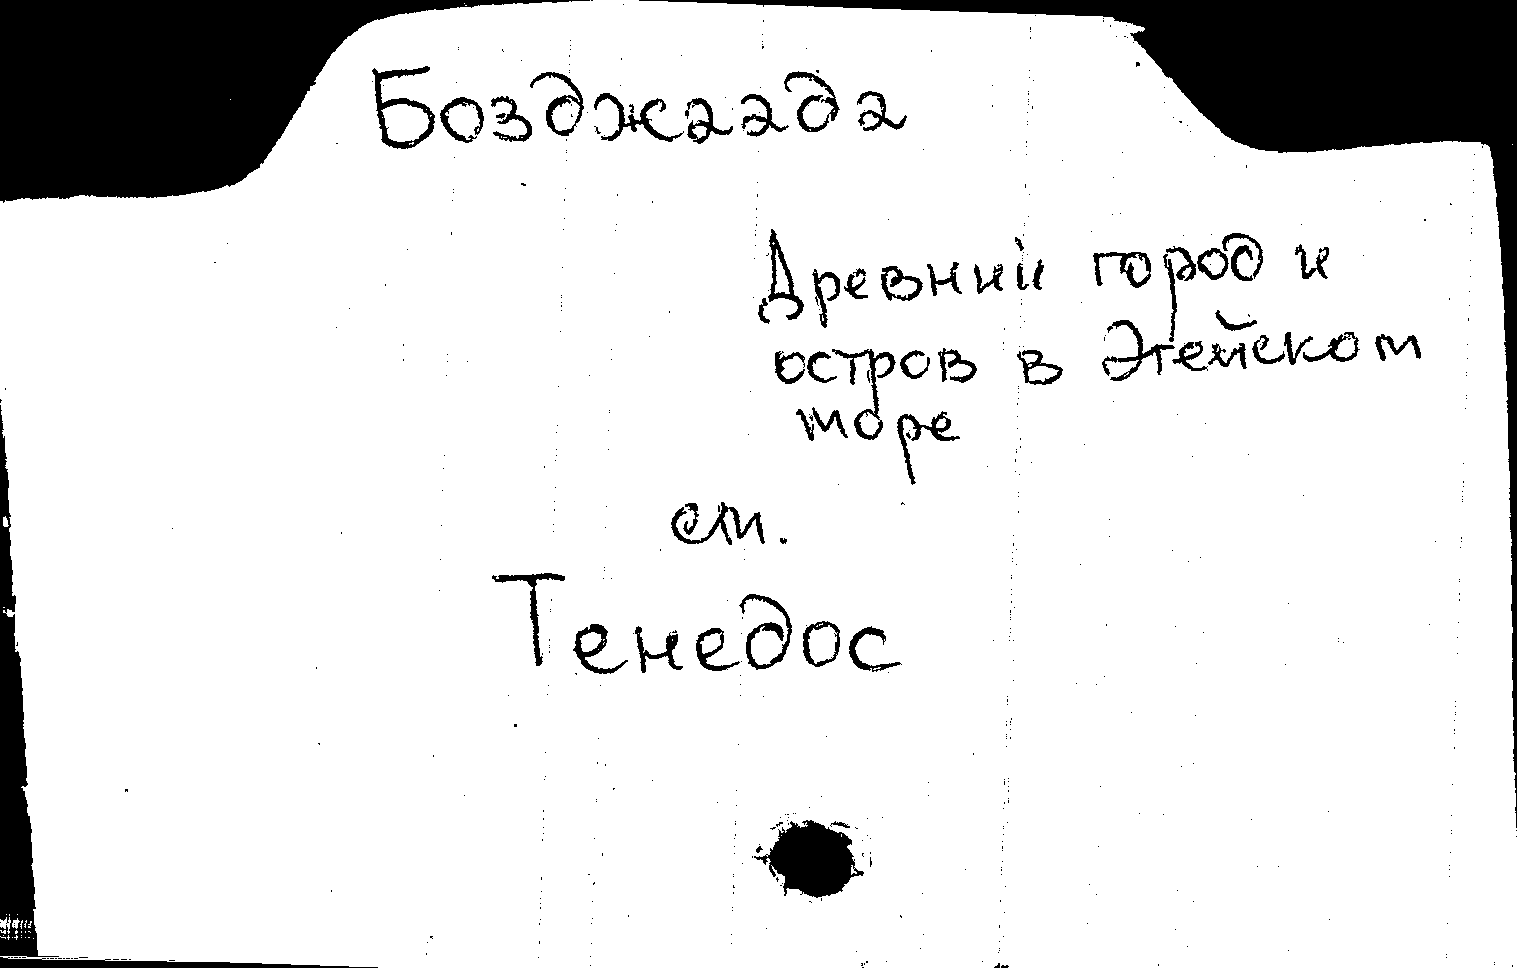 Бозджаада
Древний город и
остров в Эгейском
море
см.
Тенедос